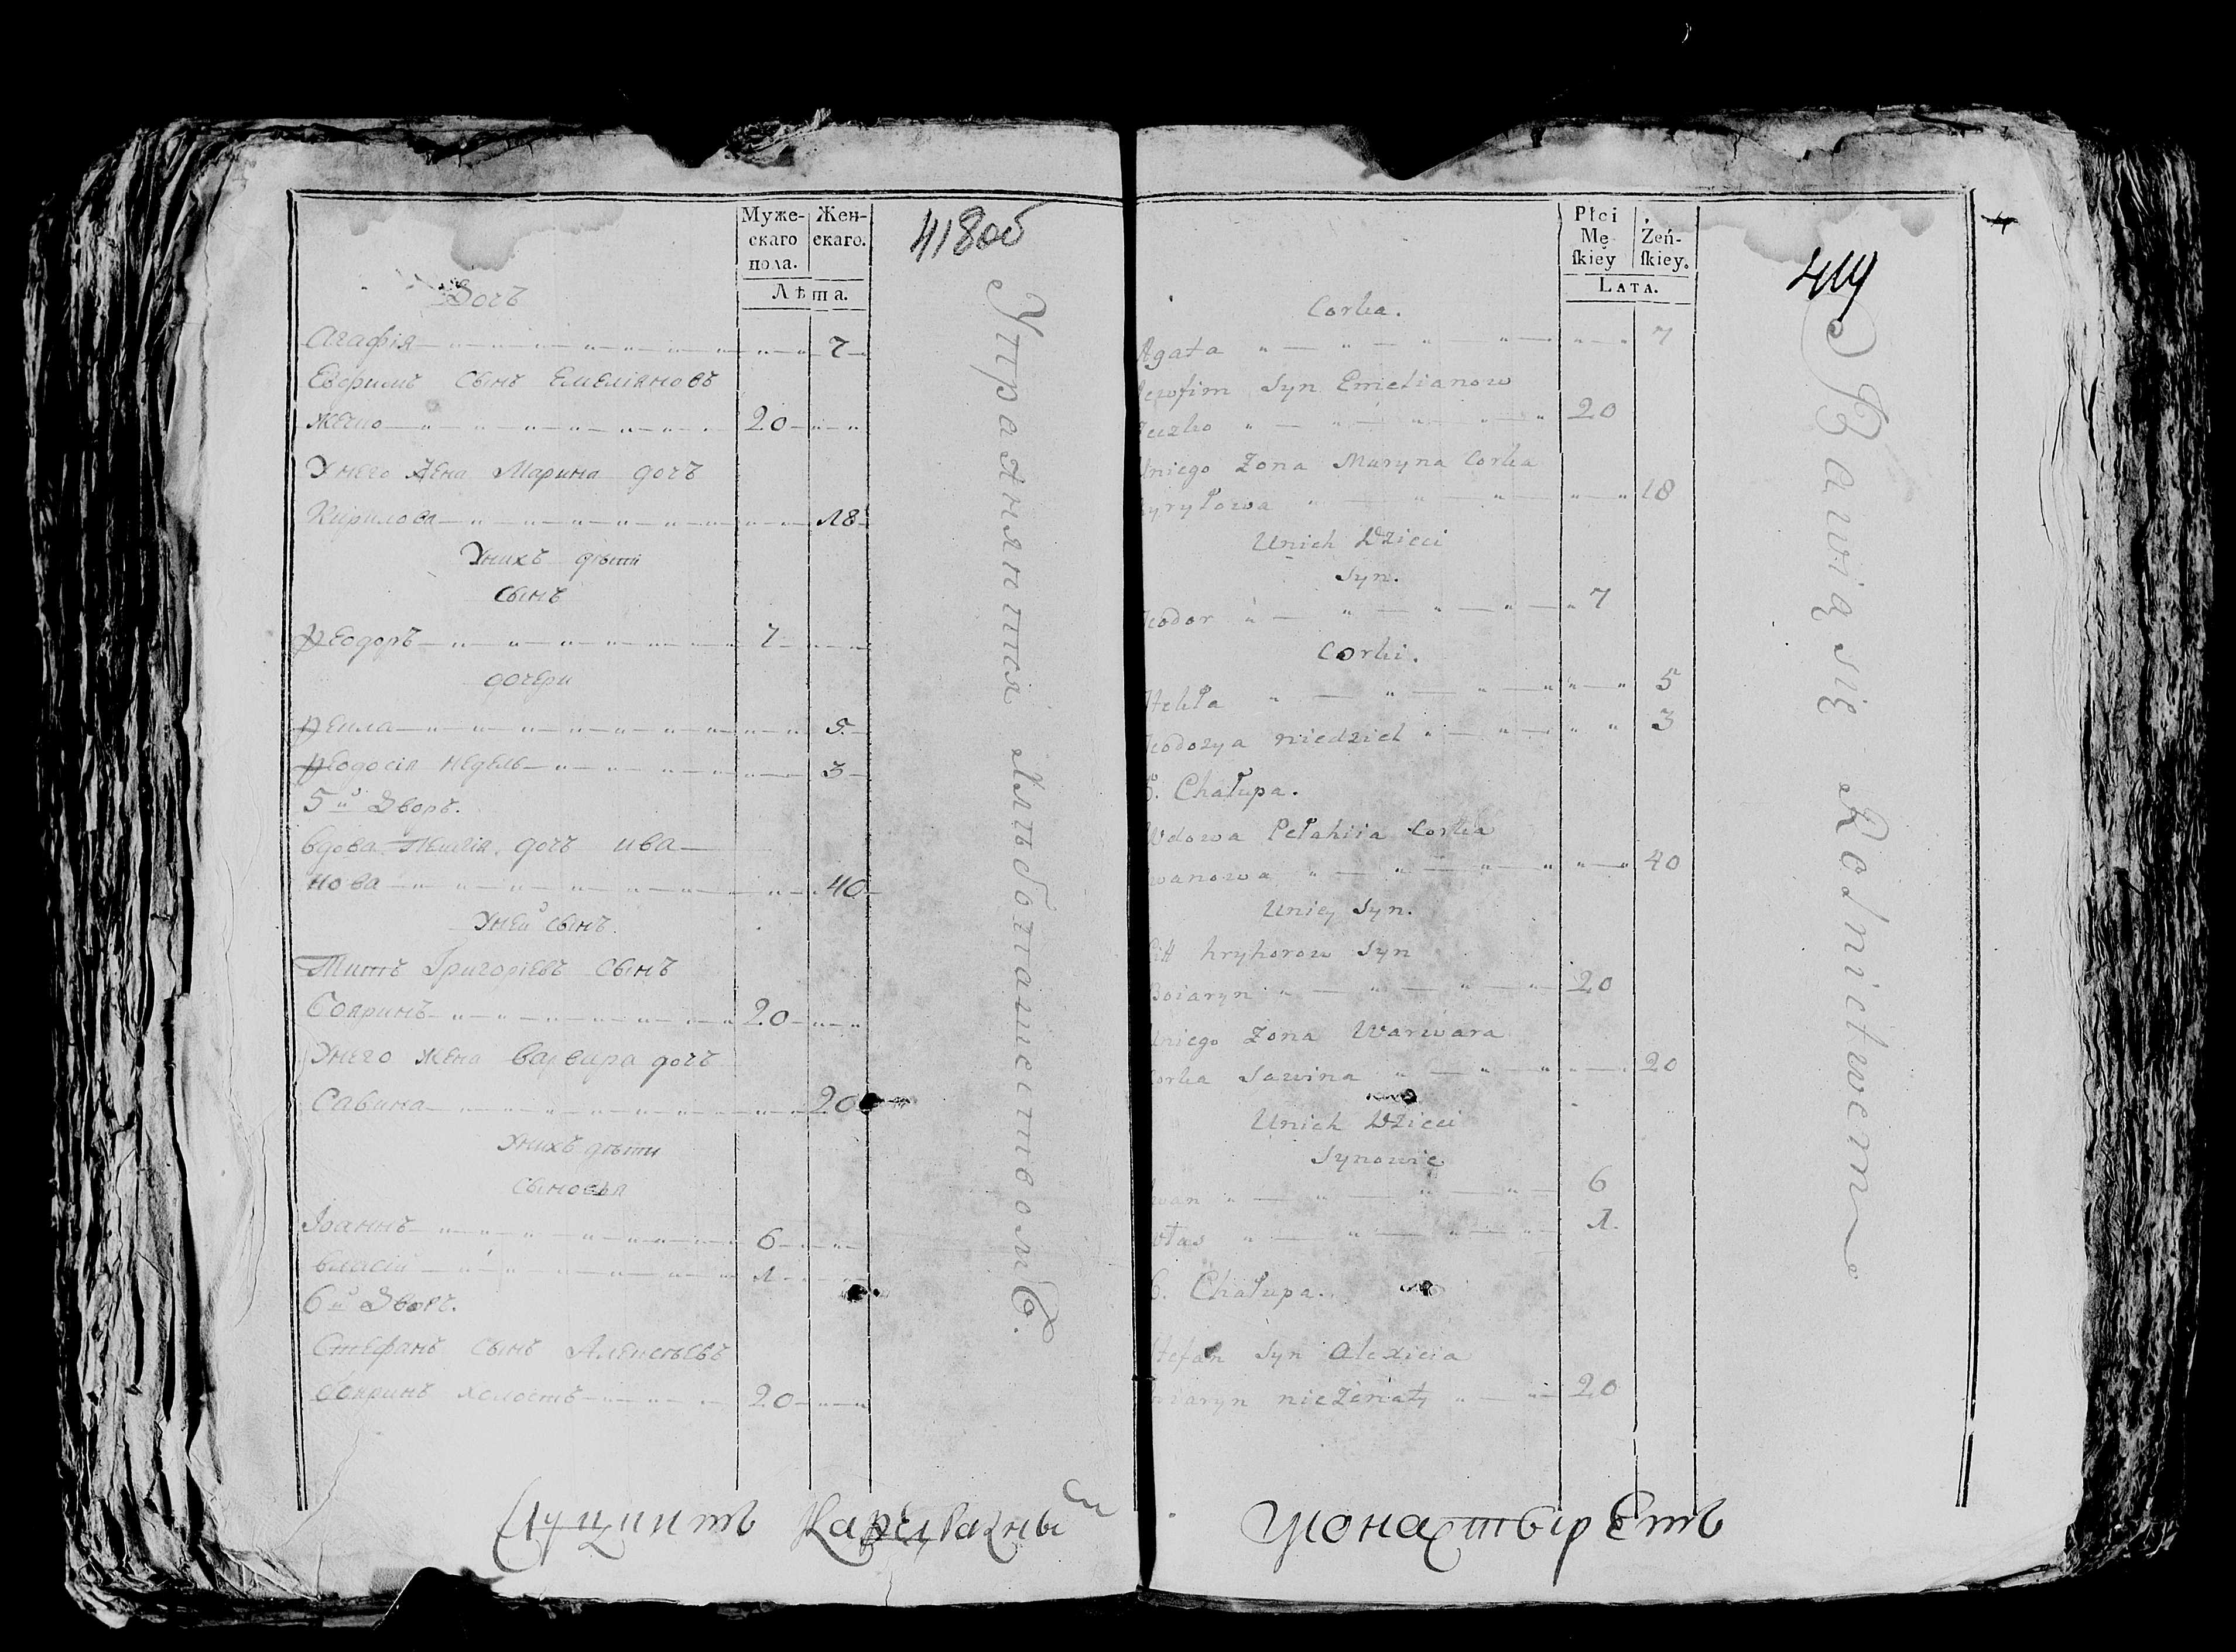 Муже-
скаго
пола.
Жен-
скаго.
Лѣта.
418об
Дочь
Агафія 7
Евфримъ сынъ Емеліяновъ
20
Унего жена Марина дочъ
Кирилова 18
Унихъ дѣти
сынъ
Ѳеодоръ 7
дочери
Ѳекла 5
Ѳеодосія недель 3
5й Дворъ.
Вдова дочъ ива
нова 40
Уней сынъ.
Титъ Григоріевъ сынъ
Бояринъ 20
Унего жена Варвара дочъ
Савина 20
Унихъ дѣти
сыновья
Іоаннъ 6
Власій 1
6й Дворъ.
Стефанъ сынъ Алексѣевъ
бояринъ холостъ 20
Упражняются хлѣбопашествомъ.
Płci
Mę-
skiey
Żeń-
skiey.
Lata.
419
Corka.
Agata 7
Syn Emelianow
20
Uniego Zona Maryna Corka
18
Unich Dzieci
Syn.
7
Corki.
5
niedziel 3
5. Chałupa.
Wdowa Pełahiia Corka
Iwanowa 40
Uniey Syn.
hryhorow Syn
Boiaryn 20
Uniego Zona Warwara
Corka Sawina 20
Unich Dzieci
Synowie
6
1
6. Chałupa.
Stefan Syn Alexieia
Boiaryn nieżenaty 20
Bawią się Rolnictwem